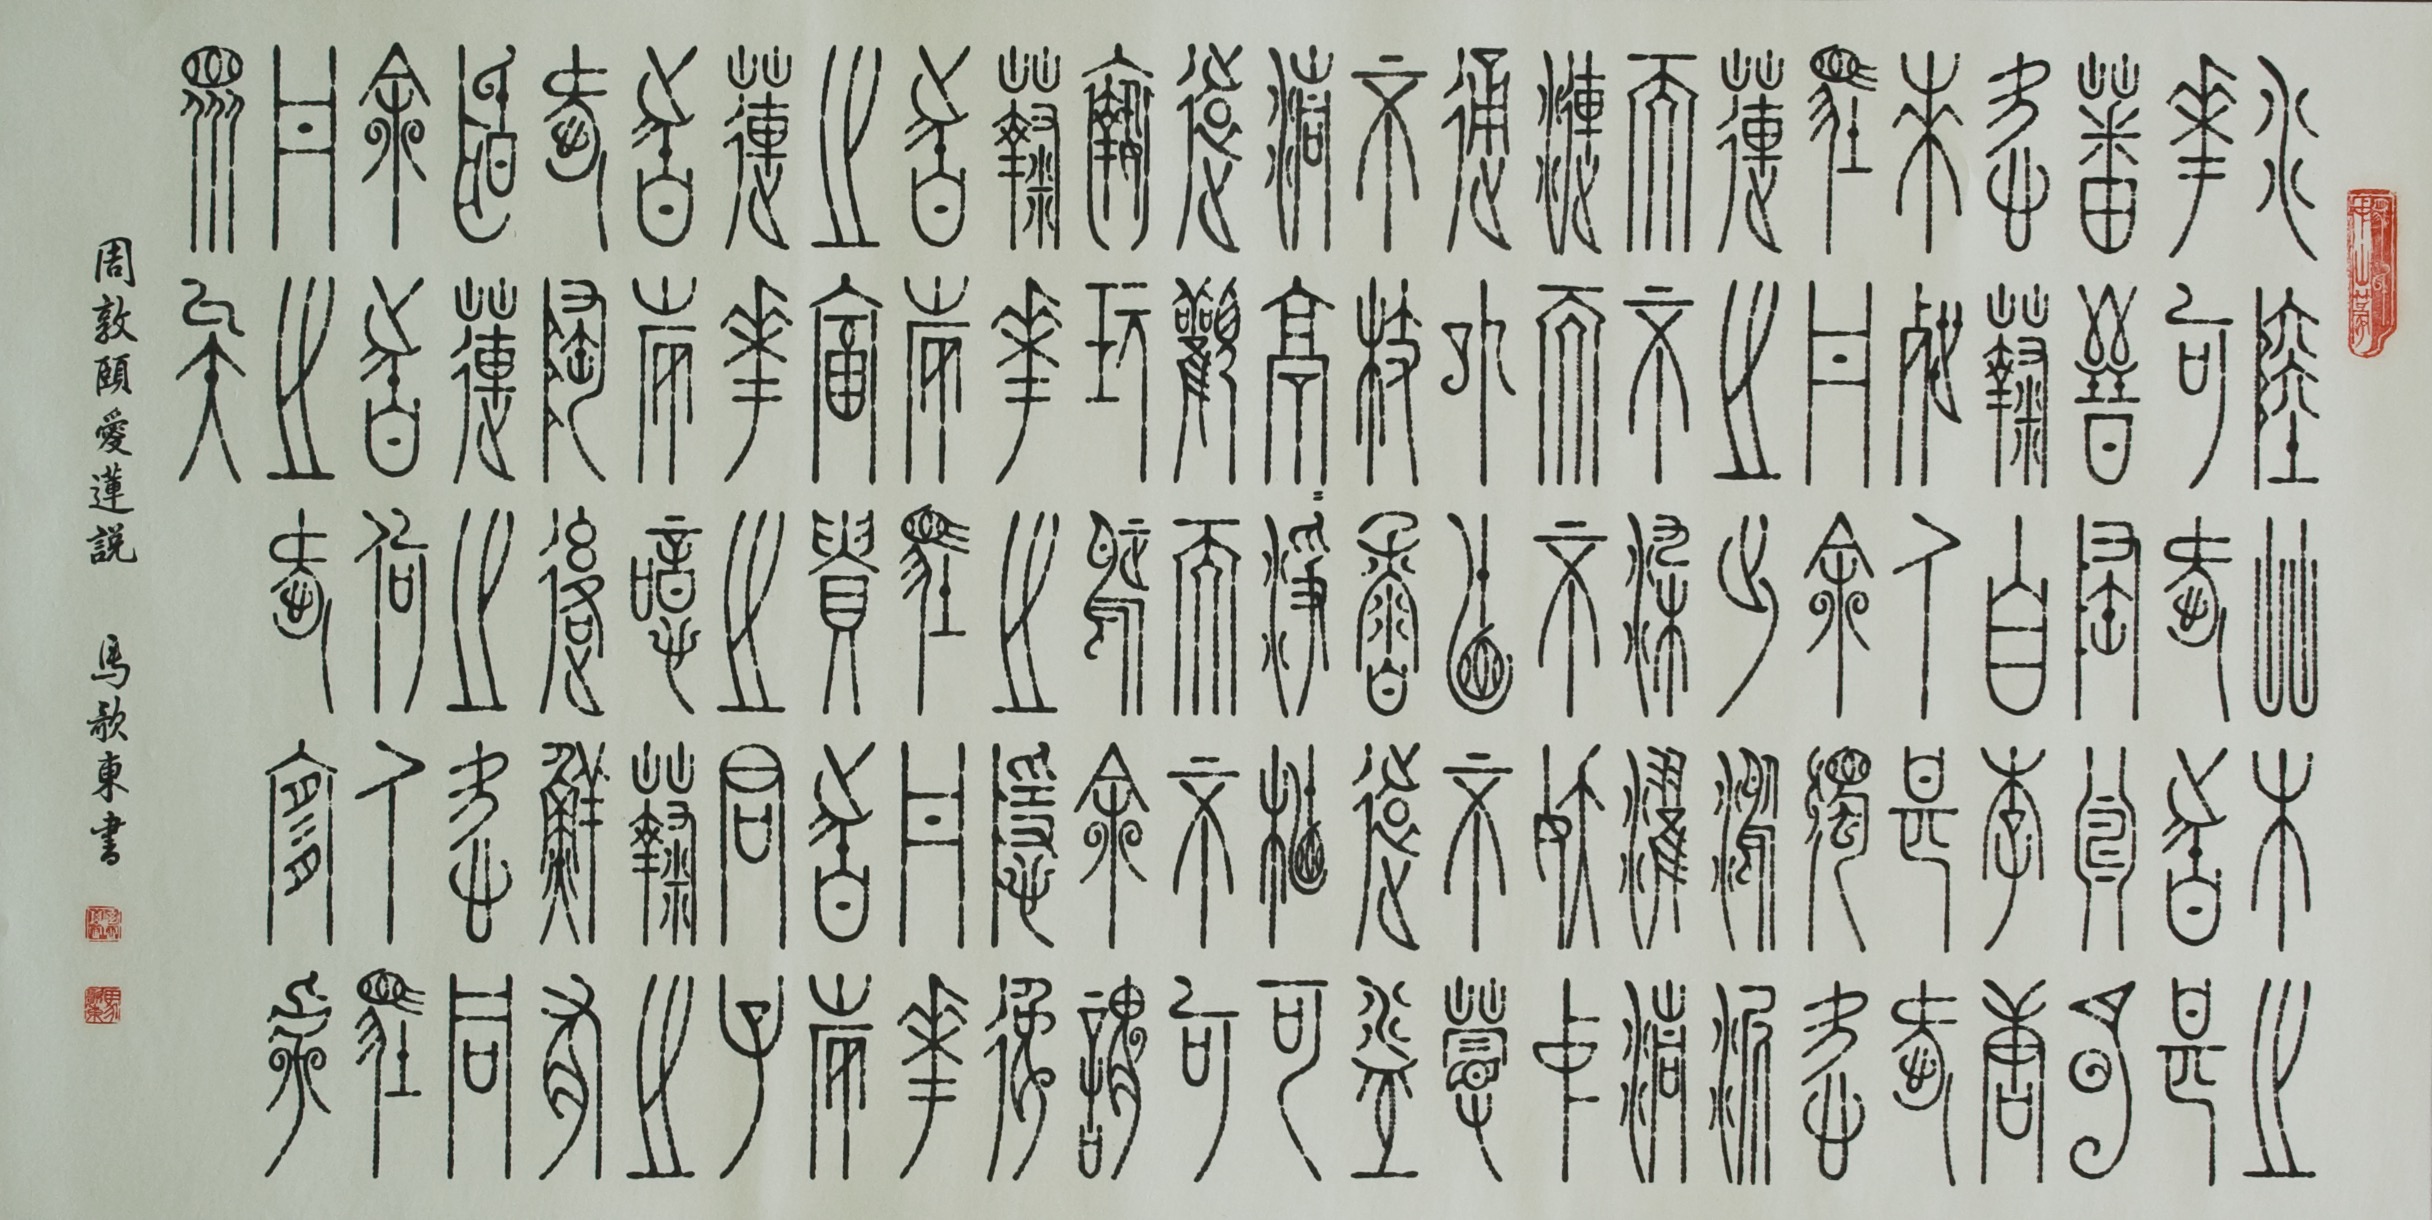 水陸艸木之
華可愛者甚
蕃晉陶淵明
愛菊自李唐
來世人甚愛
牡丹予獨愛
蓮之出淤泥
而不染濯清
漣而不妖中
通外直不蔓
不枝香遠益
清亭=淨植可
遠觀而不可
褻玩焉予謂
菊華之隱逸
者也牡丹華
之富貴者也
蓮華之君子
者也噫菊之
愛陶後鮮有
聞蓮之愛同
予者何人牡
丹之愛宜乎
眾矣
周敦頤愛蓮説 馬歌東書